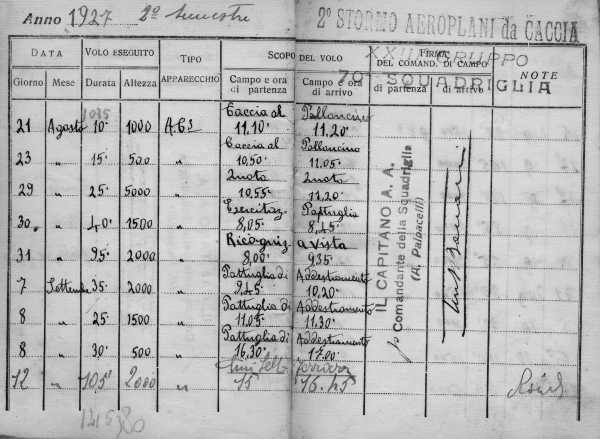 Anno 1927 2º Semestre
2º STORMO AEROPLANI da CACCIA
XXIII GRUPPO
70ª SQUADRIGLIA
DATA VOLO ESEGUITO TIPO APPARECCHIO SCOPO DEL VOLO FIRMA DEL COMAND. DI CAMPO NOTE
Giorno Mese Durata Altezza Campo e ora di partenza Campo e ora di arrivo di partenza di arrivo
1035
Caccia al Palloncino
21 Agosto 10' 1000 A.C3 11,10' 11,20'
Caccia al Palloncino
23 " 15' 500 " 10,50' 11,05'
Quota Quota
29 " 25' 5000 " 10,55' 11,20'
Esercitaz. Pattuglia
30 " 40' 1500 " 8,05' 8,45'
Ricogniz. a vista
31 " 95' 2000 " 8,00' 935'
Pattuglia di Addestramento
7 Settembre 35' 2000 " 9,45' 10,20'
Pattuglia di Addestramento
8 " 25' 1500 " 11,05' 11,30'
Pattuglia di Addestramento
8 " 30' 500 " 16,30' 17,00'
Ferrara
12 " 105' 2000 " 15 16.45
IL CAPITANO A. A.
Comandante della Squadriglia
(A. Palpacelli)